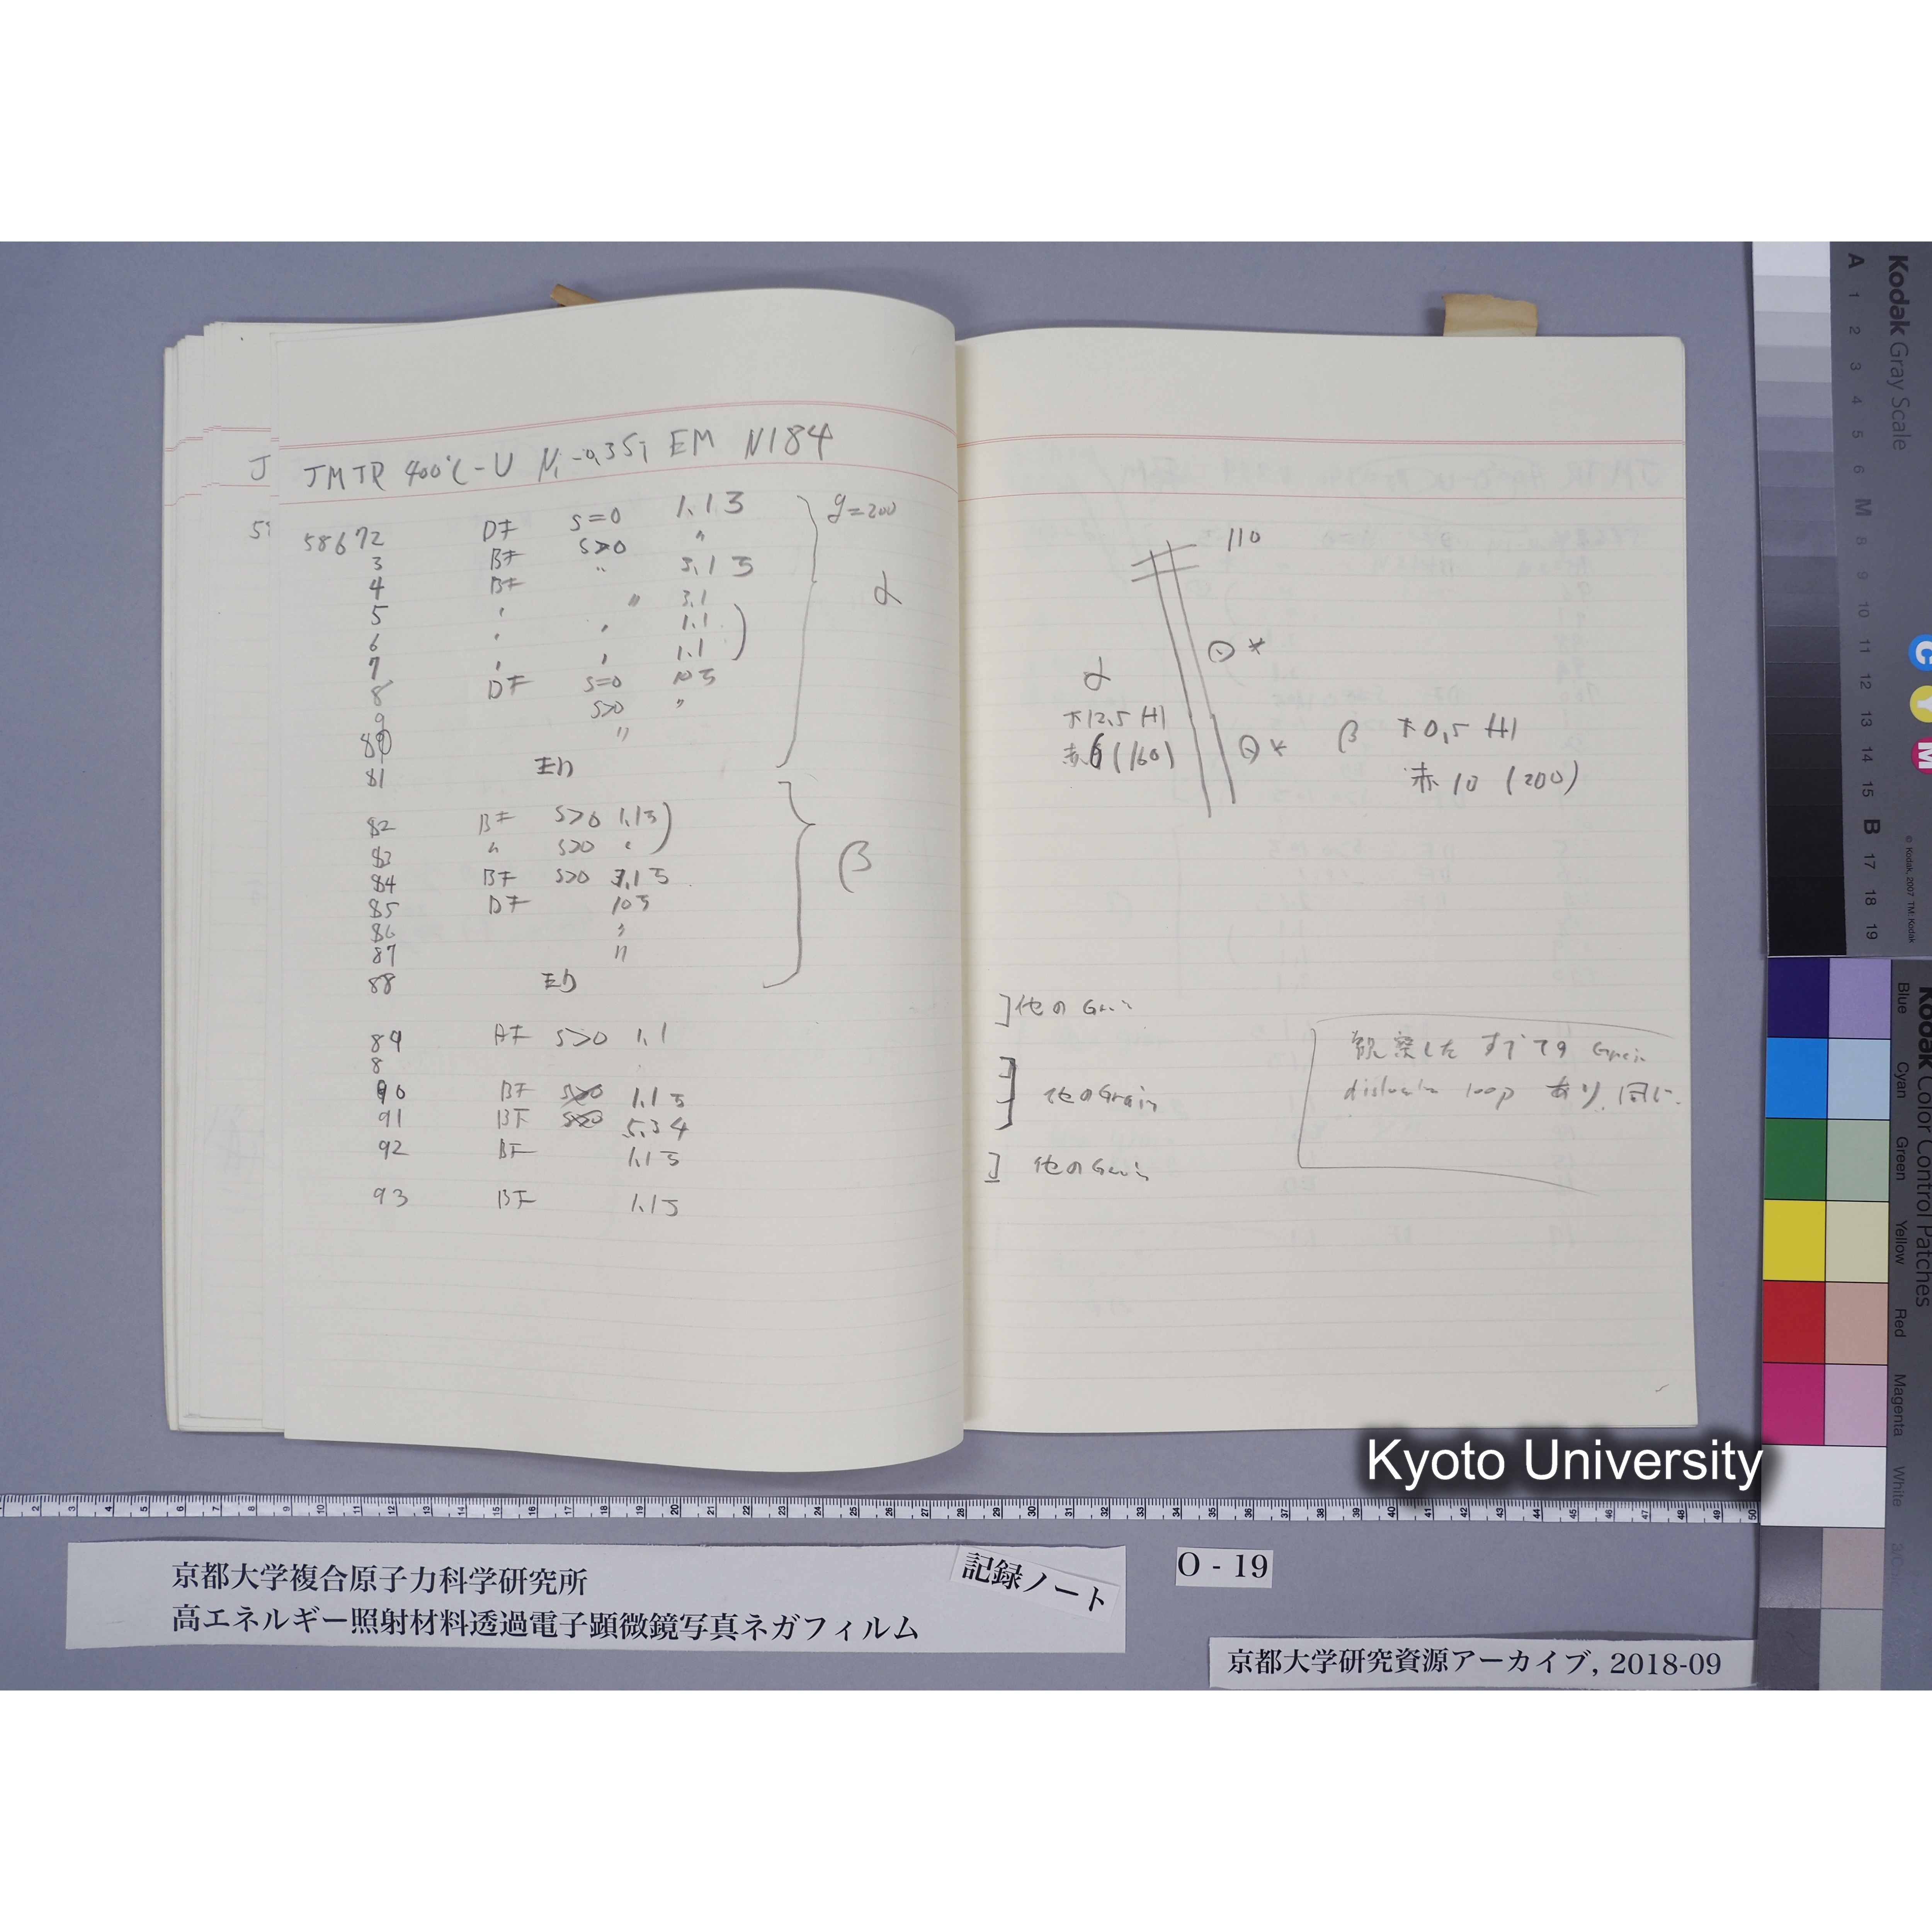 JMTR 400℃-U Ni-0.3Si EM N184
58672 DF s=0 1.13
3 BF s>0 〃
4 BF 〃 3.13
5 〃 〃 3.1
6 〃 〃 1.1
7 〃 〃 1.1
8 DF s=0 105
9 s>0 〃
80 〃
81 ED
g=200
α
82 BF s>0 1.15
83 〃 s>0 〃
84 BF s>0 3.15
85 DF 105
86 〃
87 〃
88 ED
β
89 s>0 1.1
8
90 BF 1.15
91 BF 5.34
92 BF 1.15
93 BF 1.15
110
α
下12.5 H1
赤6(160)
β 下0.5 H1
赤10 (200)
]他のGrain
] 他のGrain
] 他のGrain
観察した すべての Grain
loop あり 同じ
J
Kyoto University
京都大学複合原子力科学研究所
高エネルギー照射材料透過電子顕微鏡写真ネガフィルム
記録ノート
O - 19
京都大学研究資源アーカイブ, 2018-09
Kodak Gray Scale
A 1 2 3 4 5 6 M 8 9 10 11 12 13 14 15 B 17 18 19
C
Y
M
© Kodak, 2007 TM: Kodak
Kodak Color Control Patches
Blue
Cyan
Green
Yellow
Red
Magenta
White
2 3 4 5 6 7 8 9 10 11 12 13 14 15 16 17 18 19 20 21 22 23 24 25 26 27 28 29 30 31 32 33 34 35 36 37 38 39 40 41 42 43 44 45 46 47 48 49 50